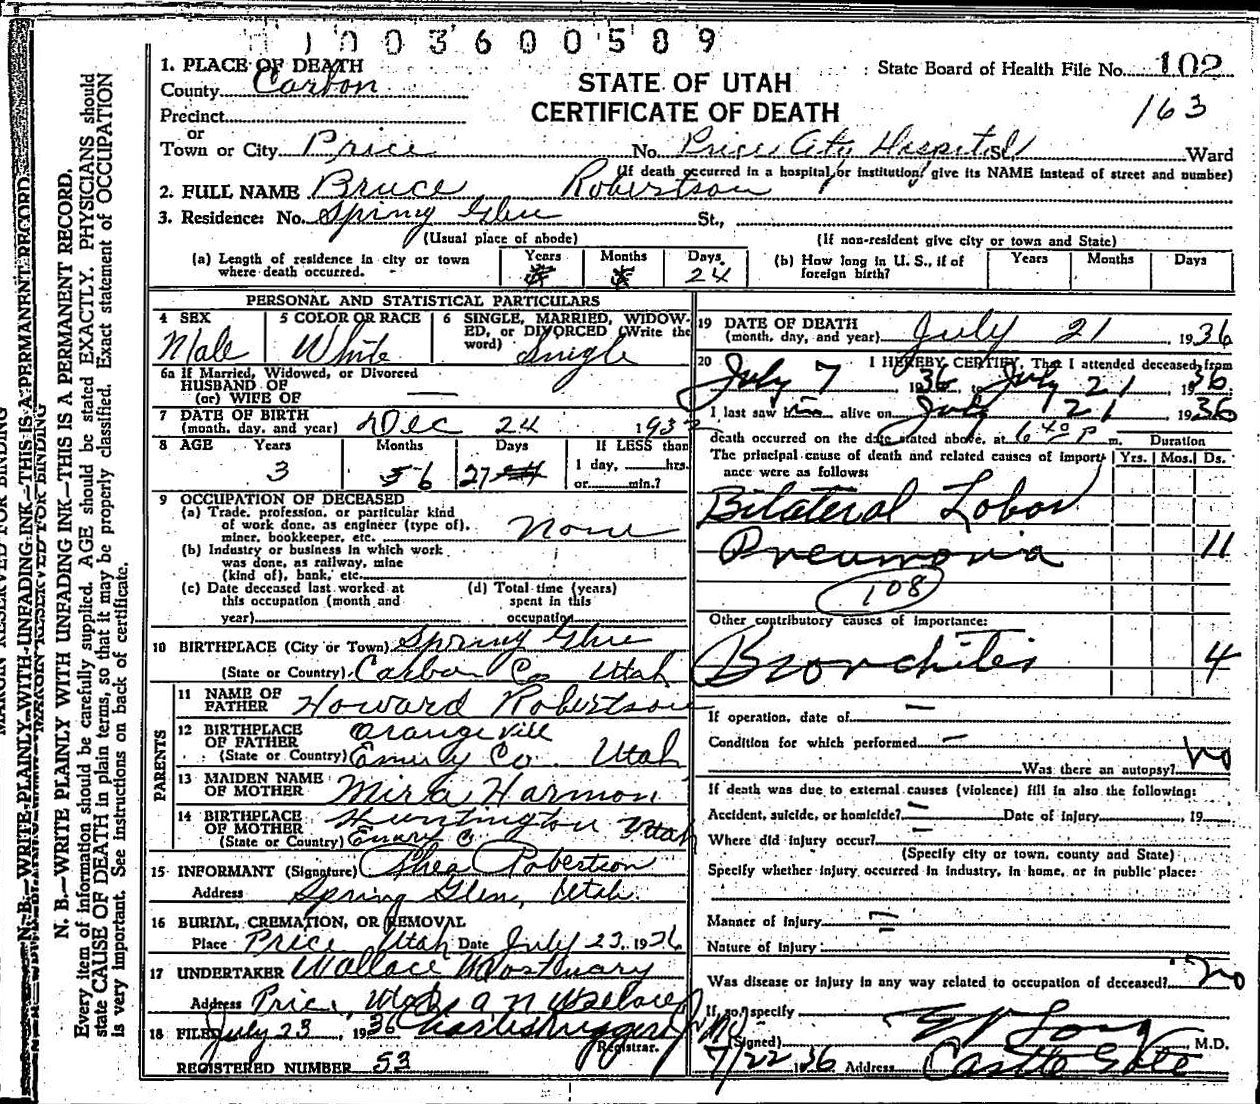 1003600589
1. PLACE OF DEATH
County Carbon
STATE OF UTAH
CERTIFICATE OF DEATH
State Board of Health File No. 102
163
Precinct
or
Town or City Price No. Price City Hospital St. Ward
(If death occurred in a hospital or institution, give its NAME instead of street and number)
2. FULL NAME Bruce Robertson
3. Residence: No. Spring Glen St.,
(Usual place of abode) (If non-resident give city or town and State)
(a) Length of residence in city or town where death occurred. Years Months Days 24
(b) How long in U. S., if of foreign birth? Years Months Days
PERSONAL AND STATISTICAL PARTICULARS
4 SEX Male
5 COLOR OR RACE White
6 SINGLE, MARRIED, WIDOWED, or DIVORCED (Write the word) Single
6a If Married, Widowed, or Divorced
HUSBAND OF
(or) WIFE OF —
7 DATE OF BIRTH
(month, day, and year) Dec 24 1932
8 AGE Years 3 Months 6 Days 27 If LESS than 1 day, hrs. or min.?
9 OCCUPATION OF DECEASED
(a) Trade, profession, or particular kind
of work done, as engineer (type of),
miner, bookkeeper, etc. None
(b) Industry or business in which work
was done, as railway, mine
(kind of), bank, etc.
(c) Date deceased last worked at
this occupation (month and
year)
(d) Total time (years)
spent in this
occupation
10 BIRTHPLACE (City or Town) Spring Glen
(State or Country) Carbon Co Utah
PARENTS
11 NAME OF
FATHER Howard Robertson
12 BIRTHPLACE
OF FATHER Orangeville
(State or Country) Emery Co. Utah
13 MAIDEN NAME
OF MOTHER Mira Harmon
14 BIRTHPLACE
OF MOTHER Huntington Utah
(State or Country) Emery Co
15 INFORMANT (Signature) Shea Robertson
Address Spring Glen, Utah.
16 BURIAL, CREMATION, OR REMOVAL
Place Price Utah Date July 23, 1936
17 UNDERTAKER Wallace Mortuary
Address Price, Utah A N Wallace
18 FILED July 23 1936 Charles Ruggeri Jr MD
Registrar.
REGISTERED NUMBER 53
19 DATE OF DEATH
(month, day, and year) July 21 1936
20 I HEREBY CERTIFY, That I attended deceased from
July 7 1936 to July 21 1936
I last saw him alive on July 21 1936
death occurred on the date stated above, at 6 40 P m.
Duration
The principal cause of death and related causes of importance were as follows: Yrs. Mos. Ds.
Bilateral Lobar
Pneumonia 11
108
Other contributory causes of importance:
Bronchitis 4
If operation, date of —
Condition for which performed —
Was there an autopsy? No
If death was due to external causes (violence) fill in also the following:
Accident, suicide, or homicide? — Date of injury 19
Where did injury occur? —
(Specify city or town, county and State)
Specify whether injury occurred in industry, in home, or in public place:
Manner of injury —
Nature of injury
Was disease or injury in any way related to occupation of deceased? No
If so, specify
(Signed) Long M.D.
7/22 1936 Address Castle Gate
MARGIN RESERVED FOR BINDING
N. B.—WRITE PLAINLY WITH UNFADING INK—THIS IS A PERMANENT RECORD.
MARGIN RESERVED FOR BINDING
N. B.—WRITE PLAINLY WITH UNFADING INK—THIS IS A PERMANENT RECORD.
Every item of information should be carefully supplied. AGE should be stated EXACTLY. PHYSICIANS should
state CAUSE OF DEATH in plain terms, so that it may be properly classified. Exact statement of OCCUPATION
is very important. See instructions on back of certificate.